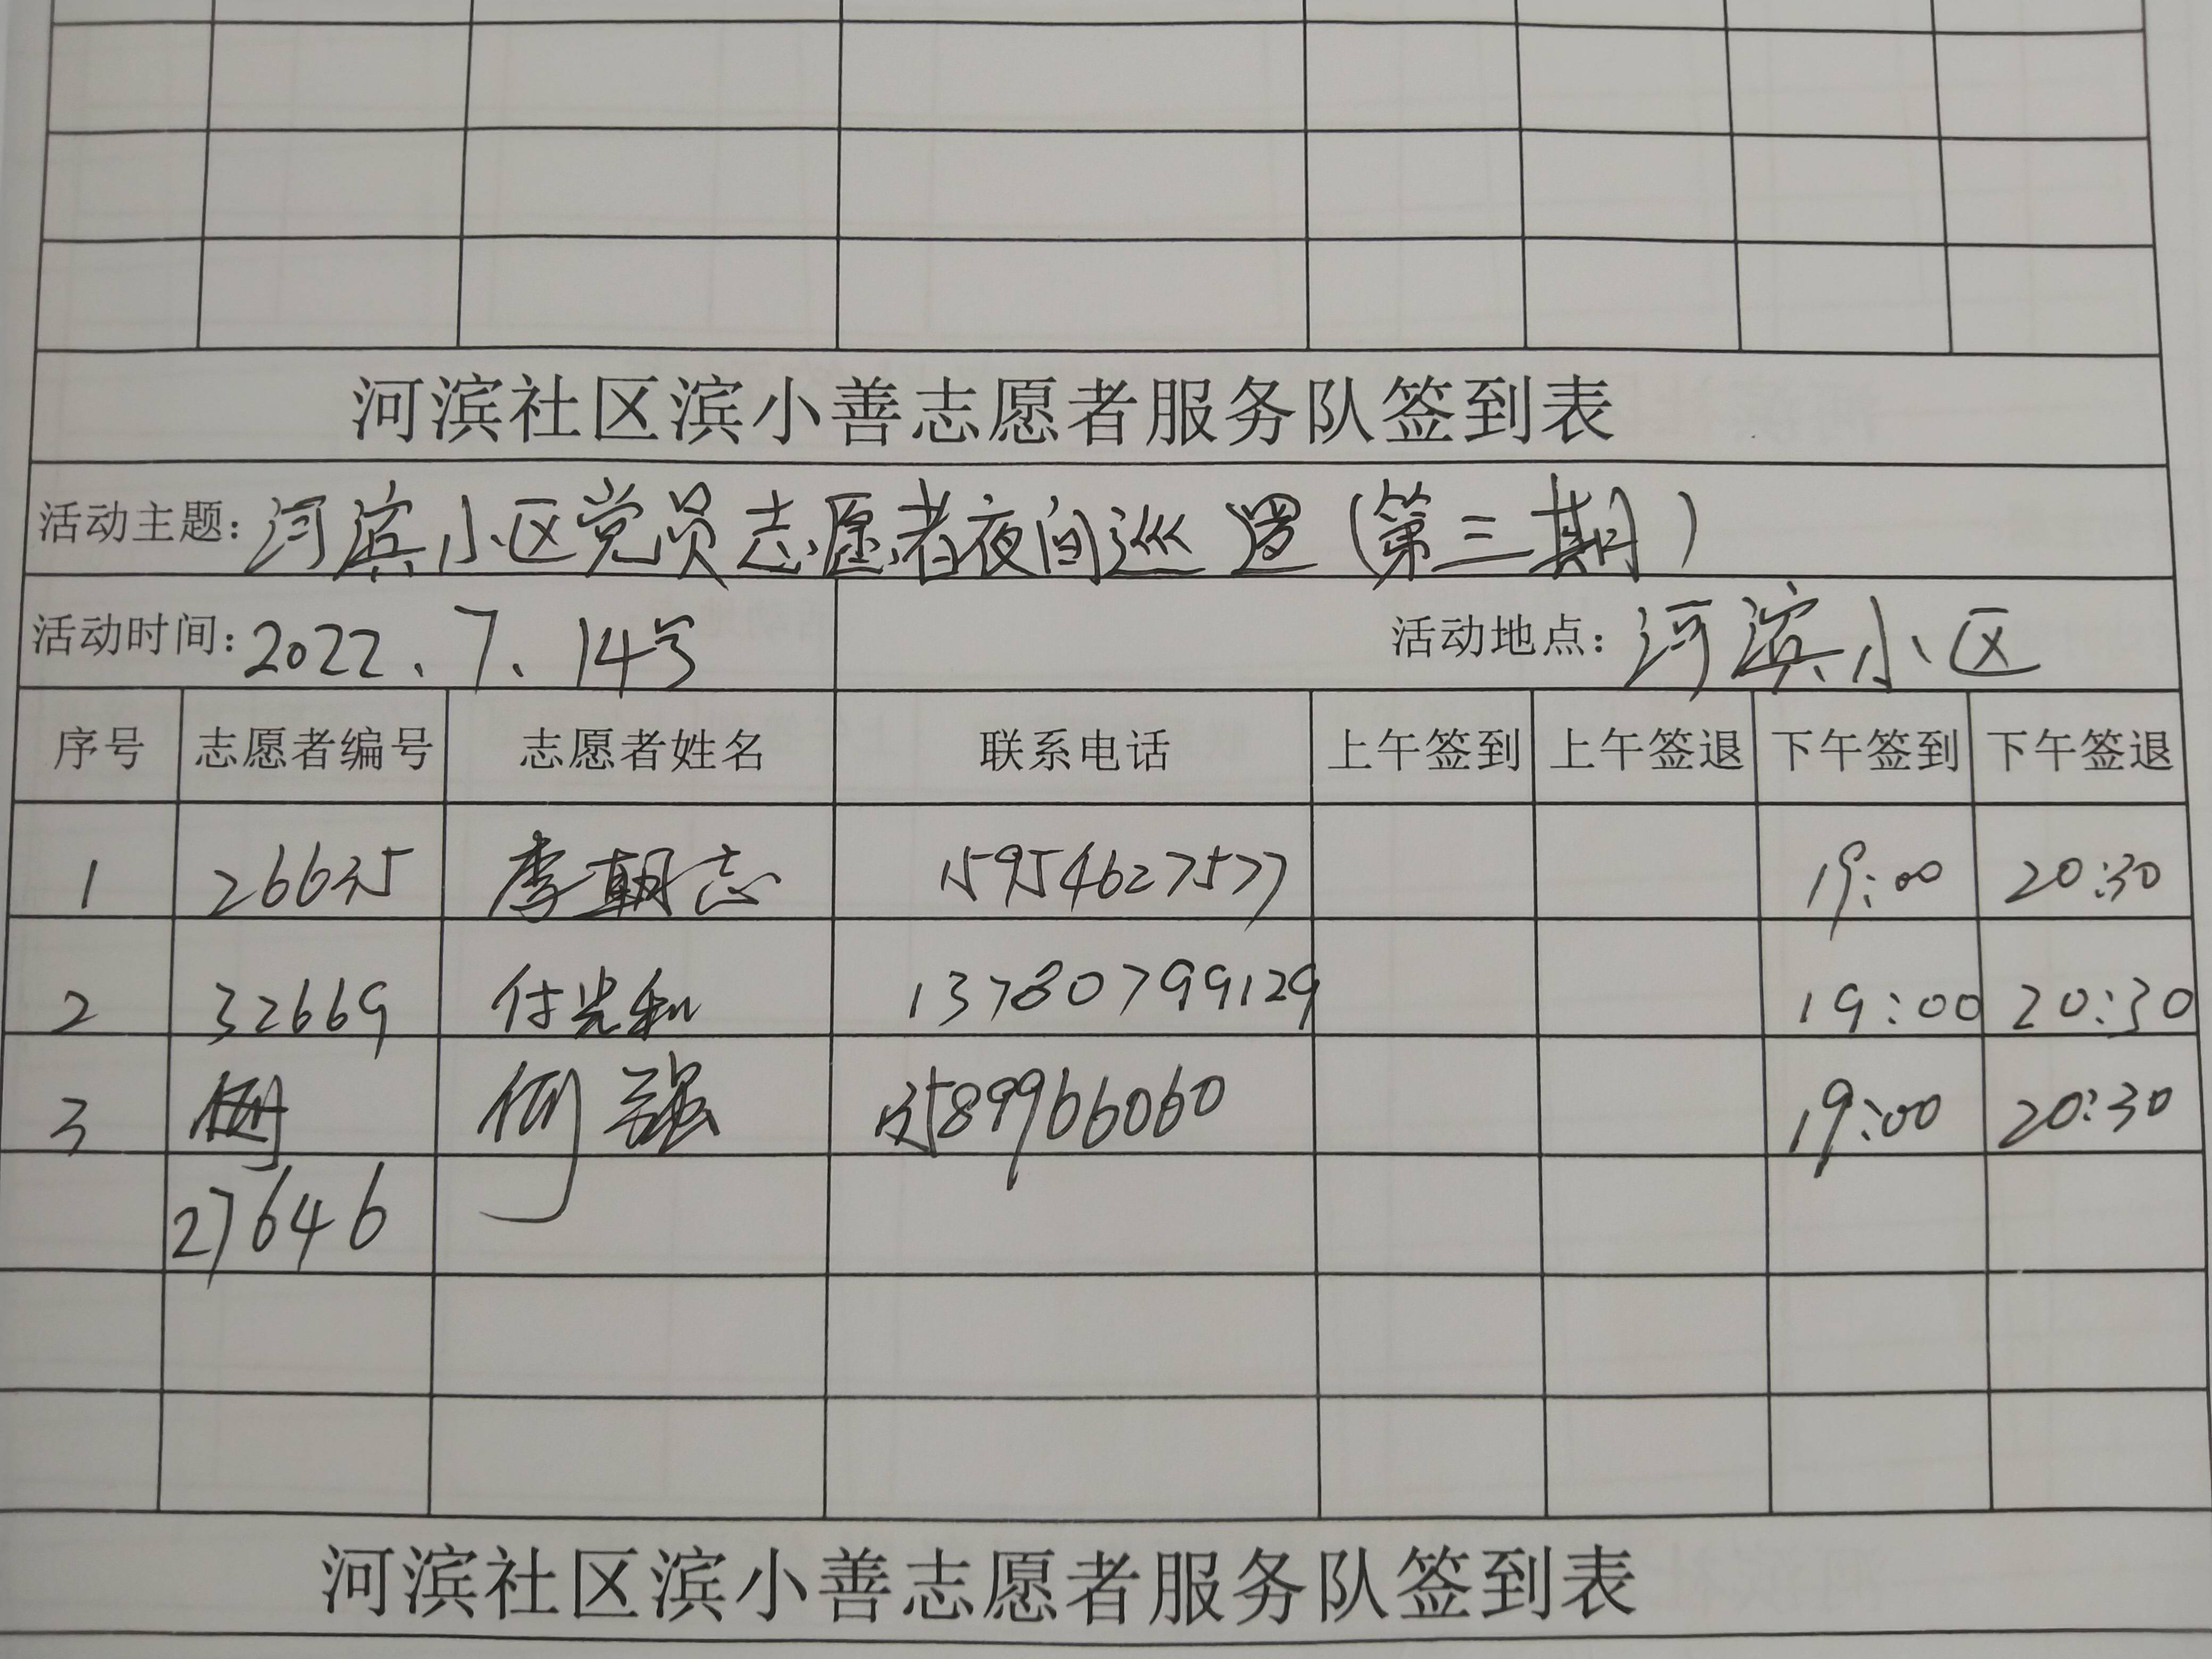 河滨社区滨小善志愿者服务队签到表
活动主题：河滨小区党员志愿者夜间巡逻（第三期）
活动时间：2022、7、14号 活动地点：河滨小区
序号 志愿者编号 志愿者姓名 联系电话 上午签到 上午签退 下午签到 下午签退
1 26635 李朝志 15954627577 19:00 20:30
2 32669 付光和 13780799129 19:00 20:30
3 何强 13589966060 19:00 20:30
27646
河滨社区滨小善志愿者服务队签到表